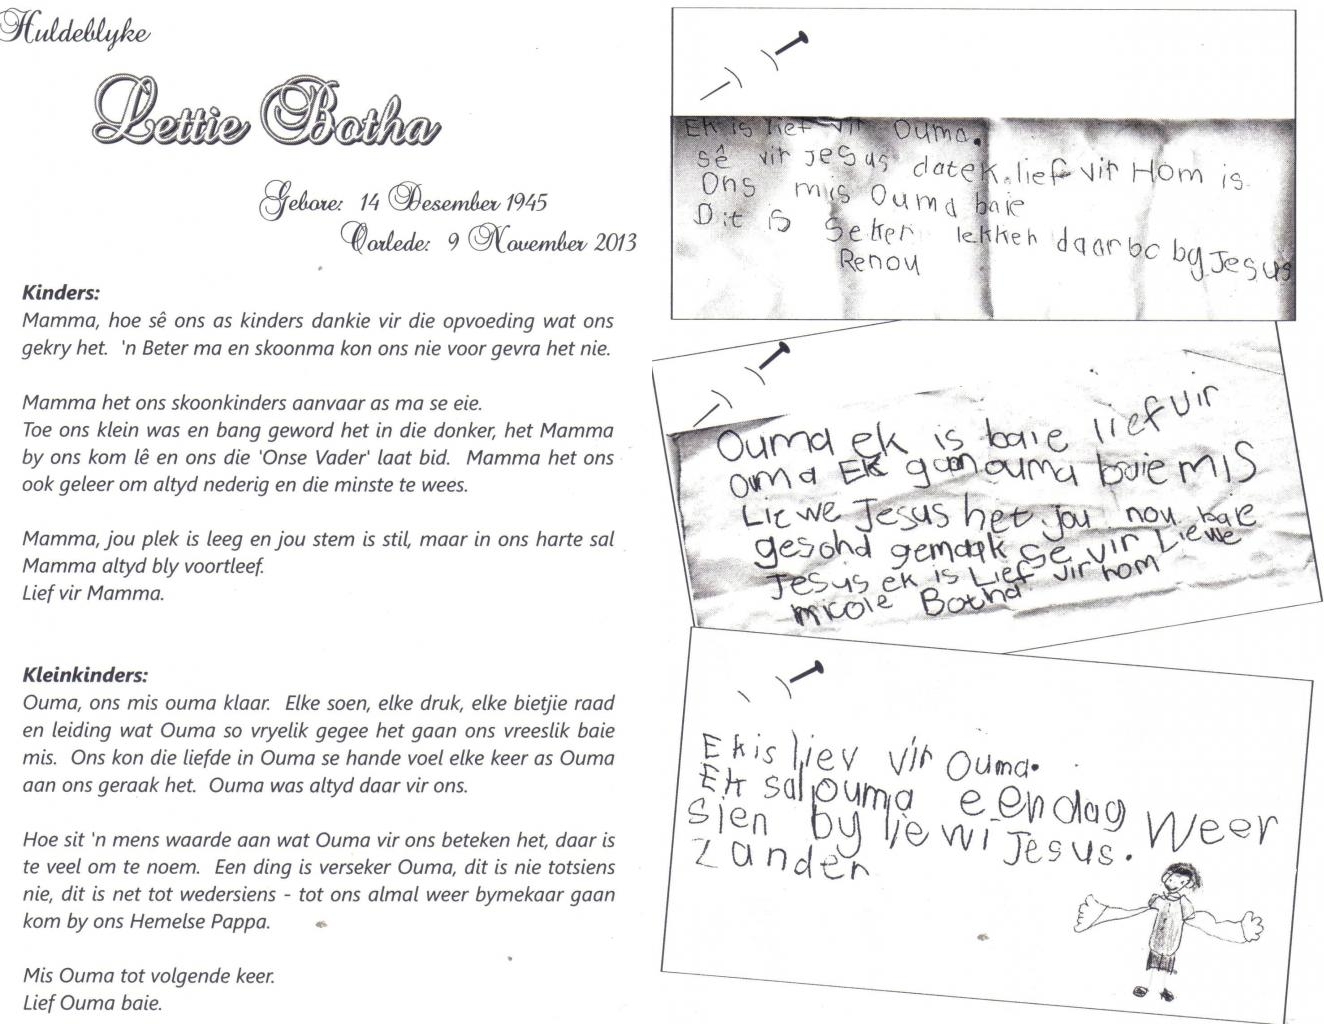 Huldeblyke
Lettie Botha
Gebore: 14 Desember 1945
Oorlede: 9 November 2013
Kinders:
Mamma, hoe sê ons as kinders dankie vir die opvoeding wat ons
gekry het. 'n Beter ma en skoonma kon ons nie voor gevra het nie.
Mamma het ons skoonkinders aanvaar as ma se eie.
Toe ons klein was en bang geword het in die donker, het Mamma
by ons kom lê en ons die 'Onse Vader' laat bid. Mamma het ons
ook geleer om altyd nederig en die minste te wees.
Mamma, jou plek is leeg en jou stem is stil, maar in ons harte sal
Mamma altyd bly voortleef.
Lief vir Mamma.
Kleinkinders:
Ouma, ons mis ouma klaar. Elke soen, elke druk, elke bietjie raad
en leiding wat Ouma so vryelik gegee het gaan ons vreeslik baie
mis. Ons kon die liefde in Ouma se hande voel elke keer as Ouma
aan ons geraak het. Ouma was altyd daar vir ons.
Hoe sit 'n mens waarde aan wat Ouma vir ons beteken het, daar is
te veel om te noem. Een ding is verseker Ouma, dit is nie totsiens
nie, dit is net tot wedersiens - tot ons almal weer bymekaar gaan
kom by ons Hemelse Pappa.
Mis Ouma tot volgende keer.
Lief Ouma baie.
Ek is lief vir Ouma.
sê vir Jesus datek lief vir Hom is
Ons mis Ouma baie
Dit is seker lekker daar bo by Jesus
Renou
Ouma ek is baie lief vir
ouma Ek gaan ouma baie mis
Liewe Jesus het jou nou baie
gesond gemaak se vir Liewe
Jesus ek is Lief vir hom
Nicole Botha
Ek is liev vir Ouma.
Ek sal ouma eendag weer
sien by liewi Jesus.
Zander